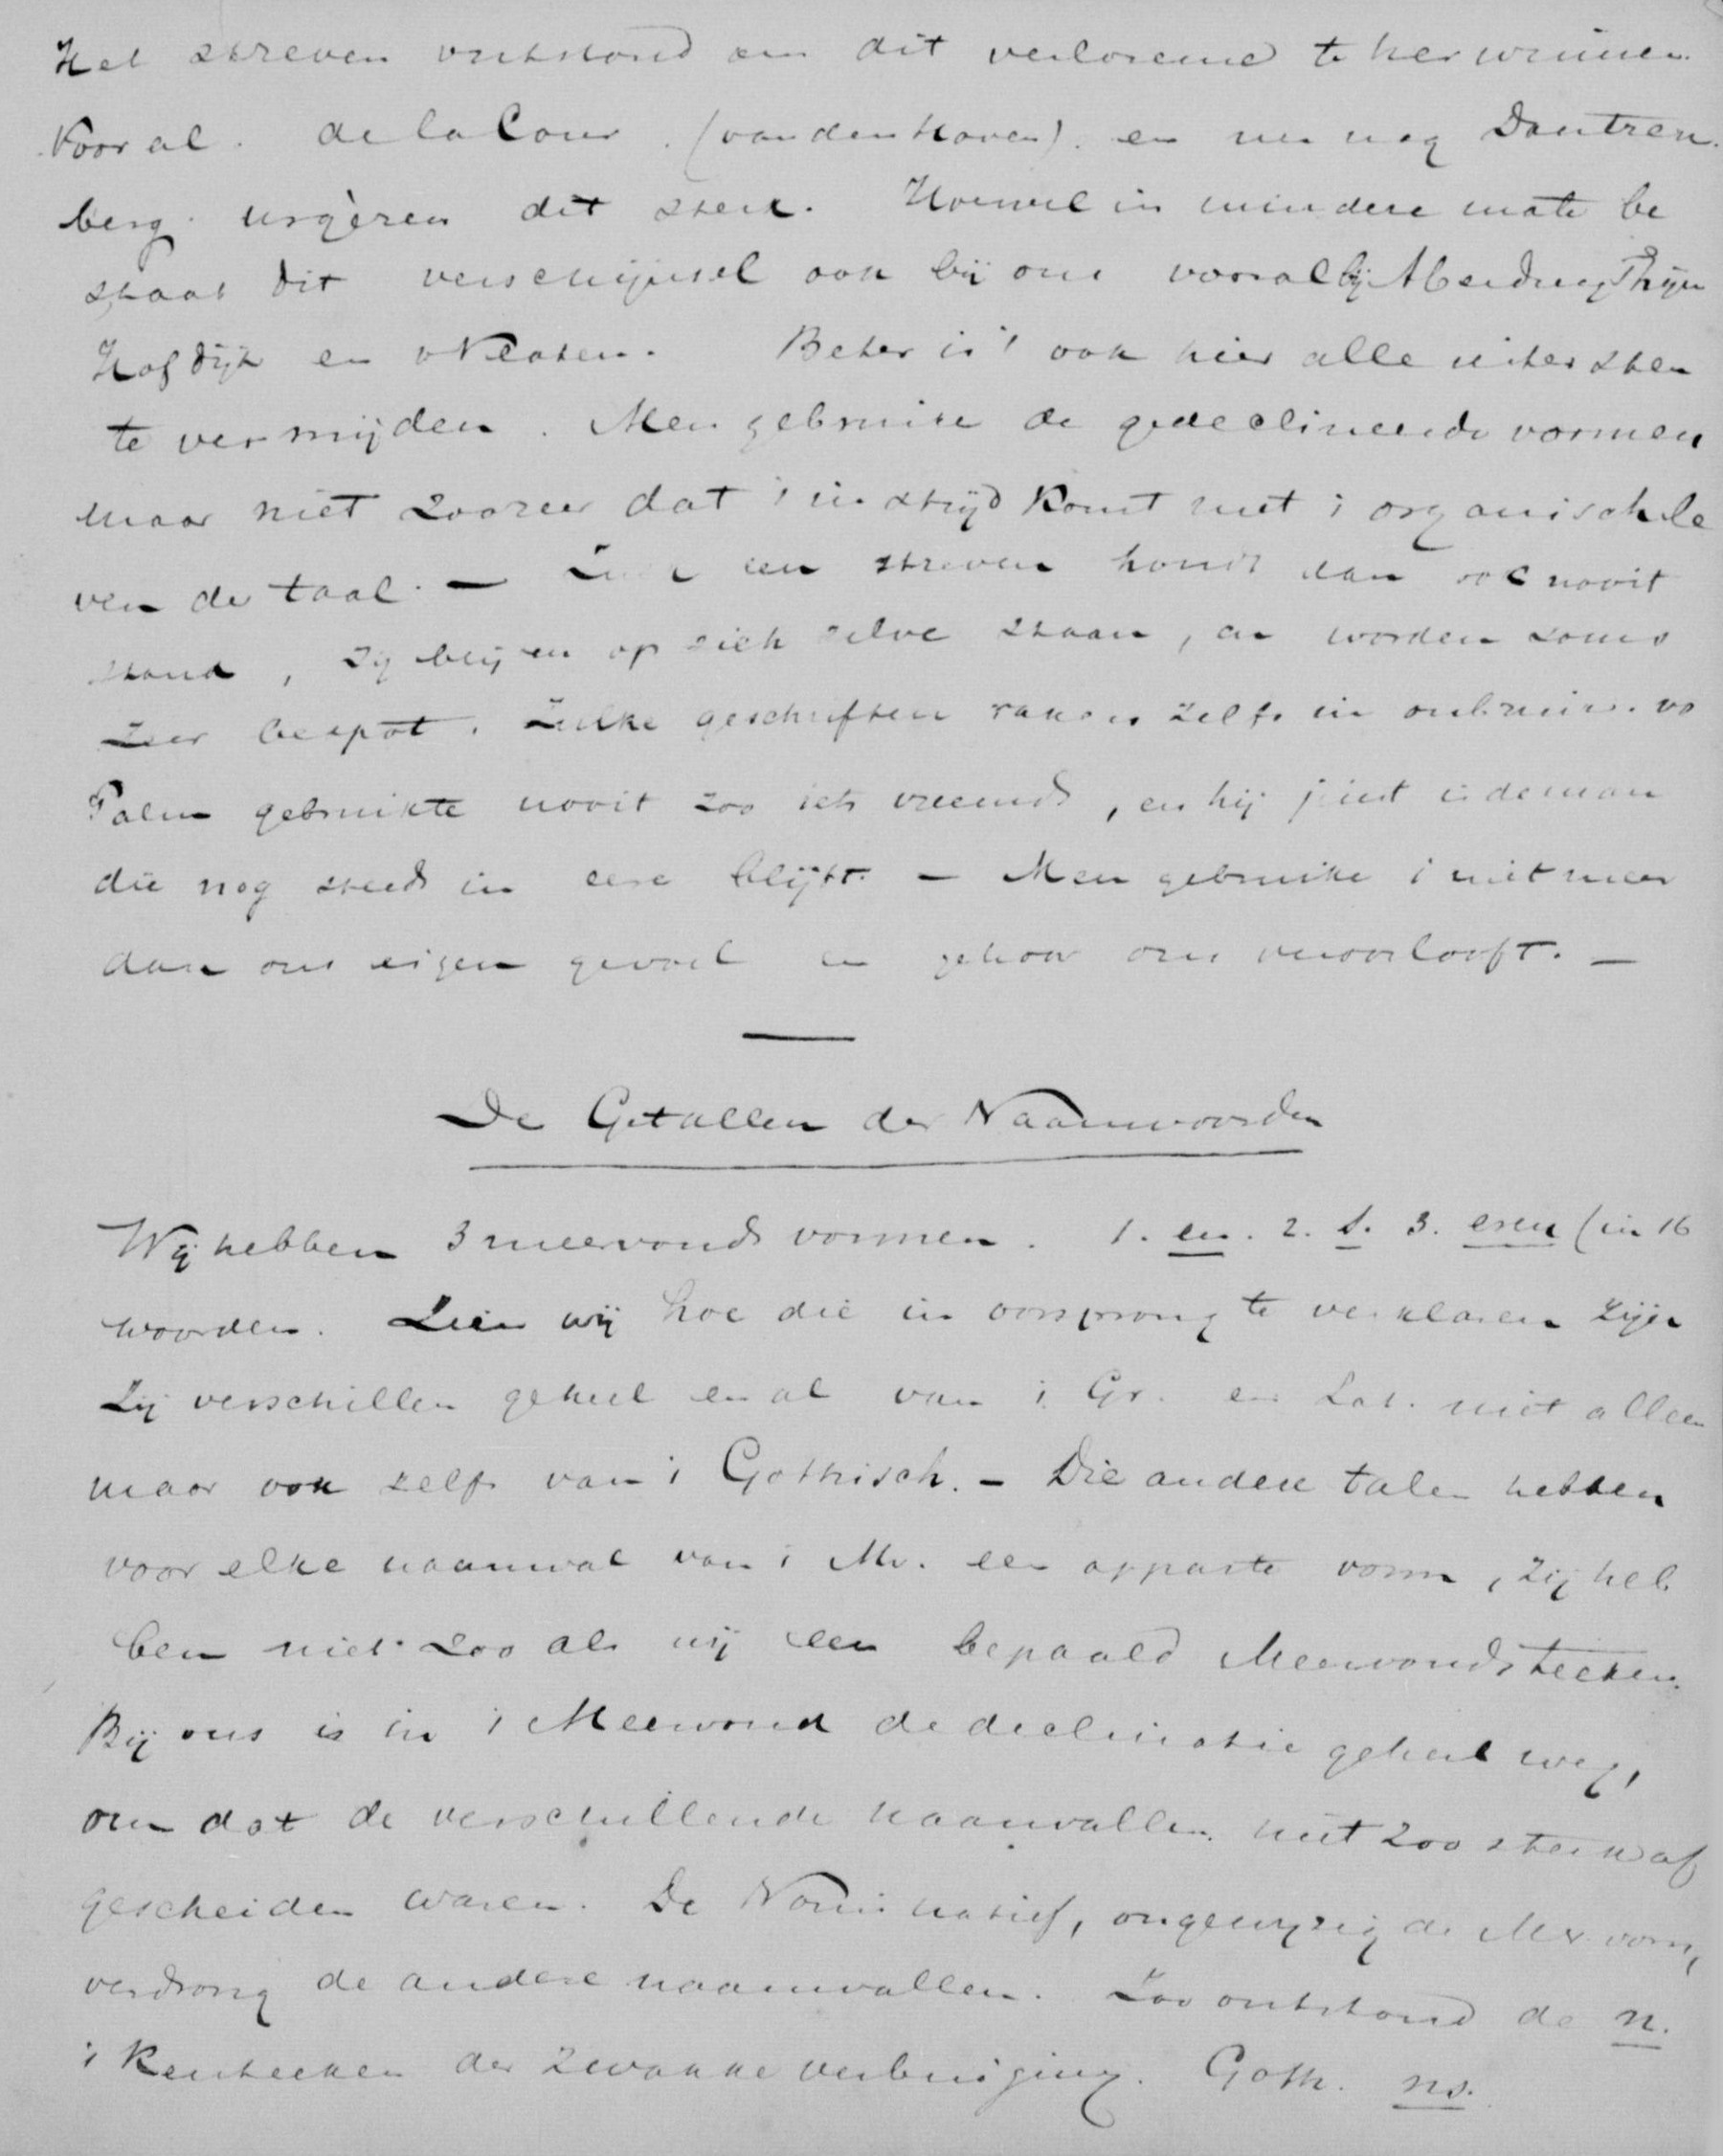 Het streven ontstond om dit verlorene te herwinnen.
Vooral. de la Cour. (van den Hoven). en nu nog Dautzen
berg. urgèren dit sterk. Hoewel in mindere mate be
staat dit verschijnsel ook bij ons vooral bij Alberding Thijm
Hofdijk en v Vloten. Beter is 't ook hier alle uitersten
te vermijden. Men gebruike de gedeclineerde vormen
maar niet zoozeer dat 't in strijd komt met 't organisch le
ven der taal. — Zulk een streven houdt dan ook nooit
stand, zij blijven op zich zelve staan, en worden soms
zeer bespot. Zulke geschriften raken zelfs in onbruik. vd
Palm gebruikte nooit zoo iets vreemds, en hij juist is de man
die nog steeds in eere blijft. — Men gebruike 't niet meer
dan ons eigen gevoel en gehoor ons veroorlooft. —
De Getallen der Naamwoorden
Wij hebben 3 meervouds vormen. 1. en. 2. s. 3. eren (in 16
woorden. Zien wij hoe die in oorsprong te verklaren zijn
Zij verschillen geheel en al van 't Gr. en Lat. niet alleen
maar ook zelfs van 't Gothisch. — Die andere talen hebben
voor elke naamval van 't Mv. een apparte vorm, zij heb
ben niet zoo als wij een bepaald Meervoudsteeken.
Bij ons is in 't Meervoud de declinatie geheel weg,
om dat de verschillende naamvallen niet zoo sterk af
gescheiden waren. De Nominatief, de Mv. vorm,
verdrong de andere naamvallen. Zoo ontstond de n.
't Kenteeken der zwakke verbuiging. Goth. ns.